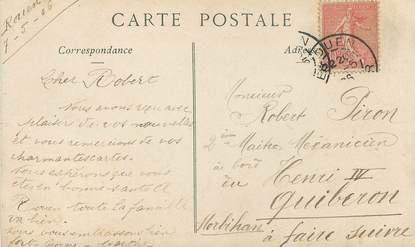 Rouen
7-5-06
CARTE POSTALE
Correspondance
Cher Robert
nous avons reçu avec
plaisir de vos nouvelles
et vous remercions de vos
charmantes cartes.
nous espérons que vous
etes en bonne santé
Rouen toute la famille
va bien.
nous vous embrassons bien
ROUEN
Monsieur
Robert Piron
2ème Maitre Mécanicien
à bord
du Henri IV
Quiberon
Morbihan
à faire suivre